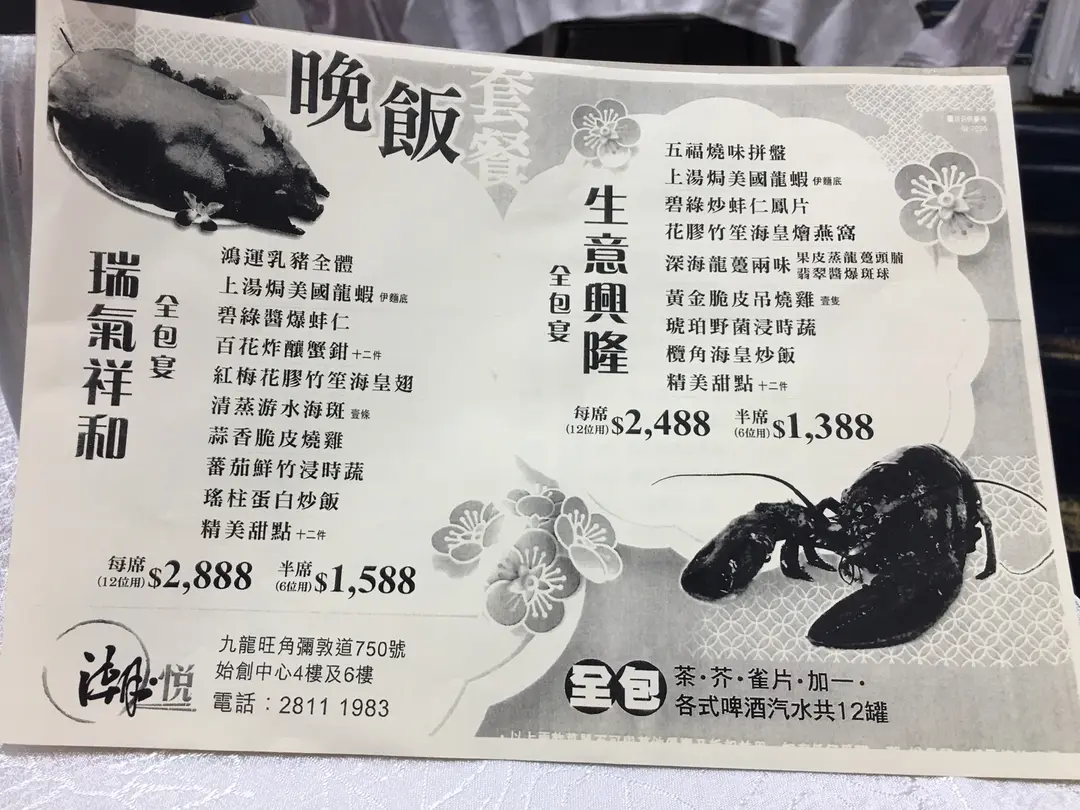 晚飯套餐
瑞氣祥和
全包宴
鴻運乳豬全體
上湯焗美國龍蝦 伊麵底
碧綠醬爆蚌仁
百花炸釀蟹鉗 十二件
紅梅花膠竹笙海皇翅
清蒸游水海斑 壹條
蒜香脆皮燒雞
蕃茄鮮竹浸時蔬
瑤柱蛋白炒飯
精美甜點 十二件
每席(12位用) $2,888 半席(6位用) $1,588
生意興隆
全包宴
五福燒味拼盤
上湯焗美國龍蝦 伊麵底
碧綠炒蚌仁鳳片
花膠竹笙海皇燴燕窩
深海龍躉兩味 果皮蒸龍躉頭腩
翡翠醬爆斑球
黃金脆皮吊燒雞 壹隻
琥珀野菌浸時蔬
欖角海皇炒飯
精美甜點 十二件
每席(12位用) $2,488 半席(6位用) $1,388
潮悅
九龍旺角彌敦道750號
始創中心4樓及6樓
電話：2811 1983
全包
茶·芥·雀片·加一·
各式啤酒汽水共12罐